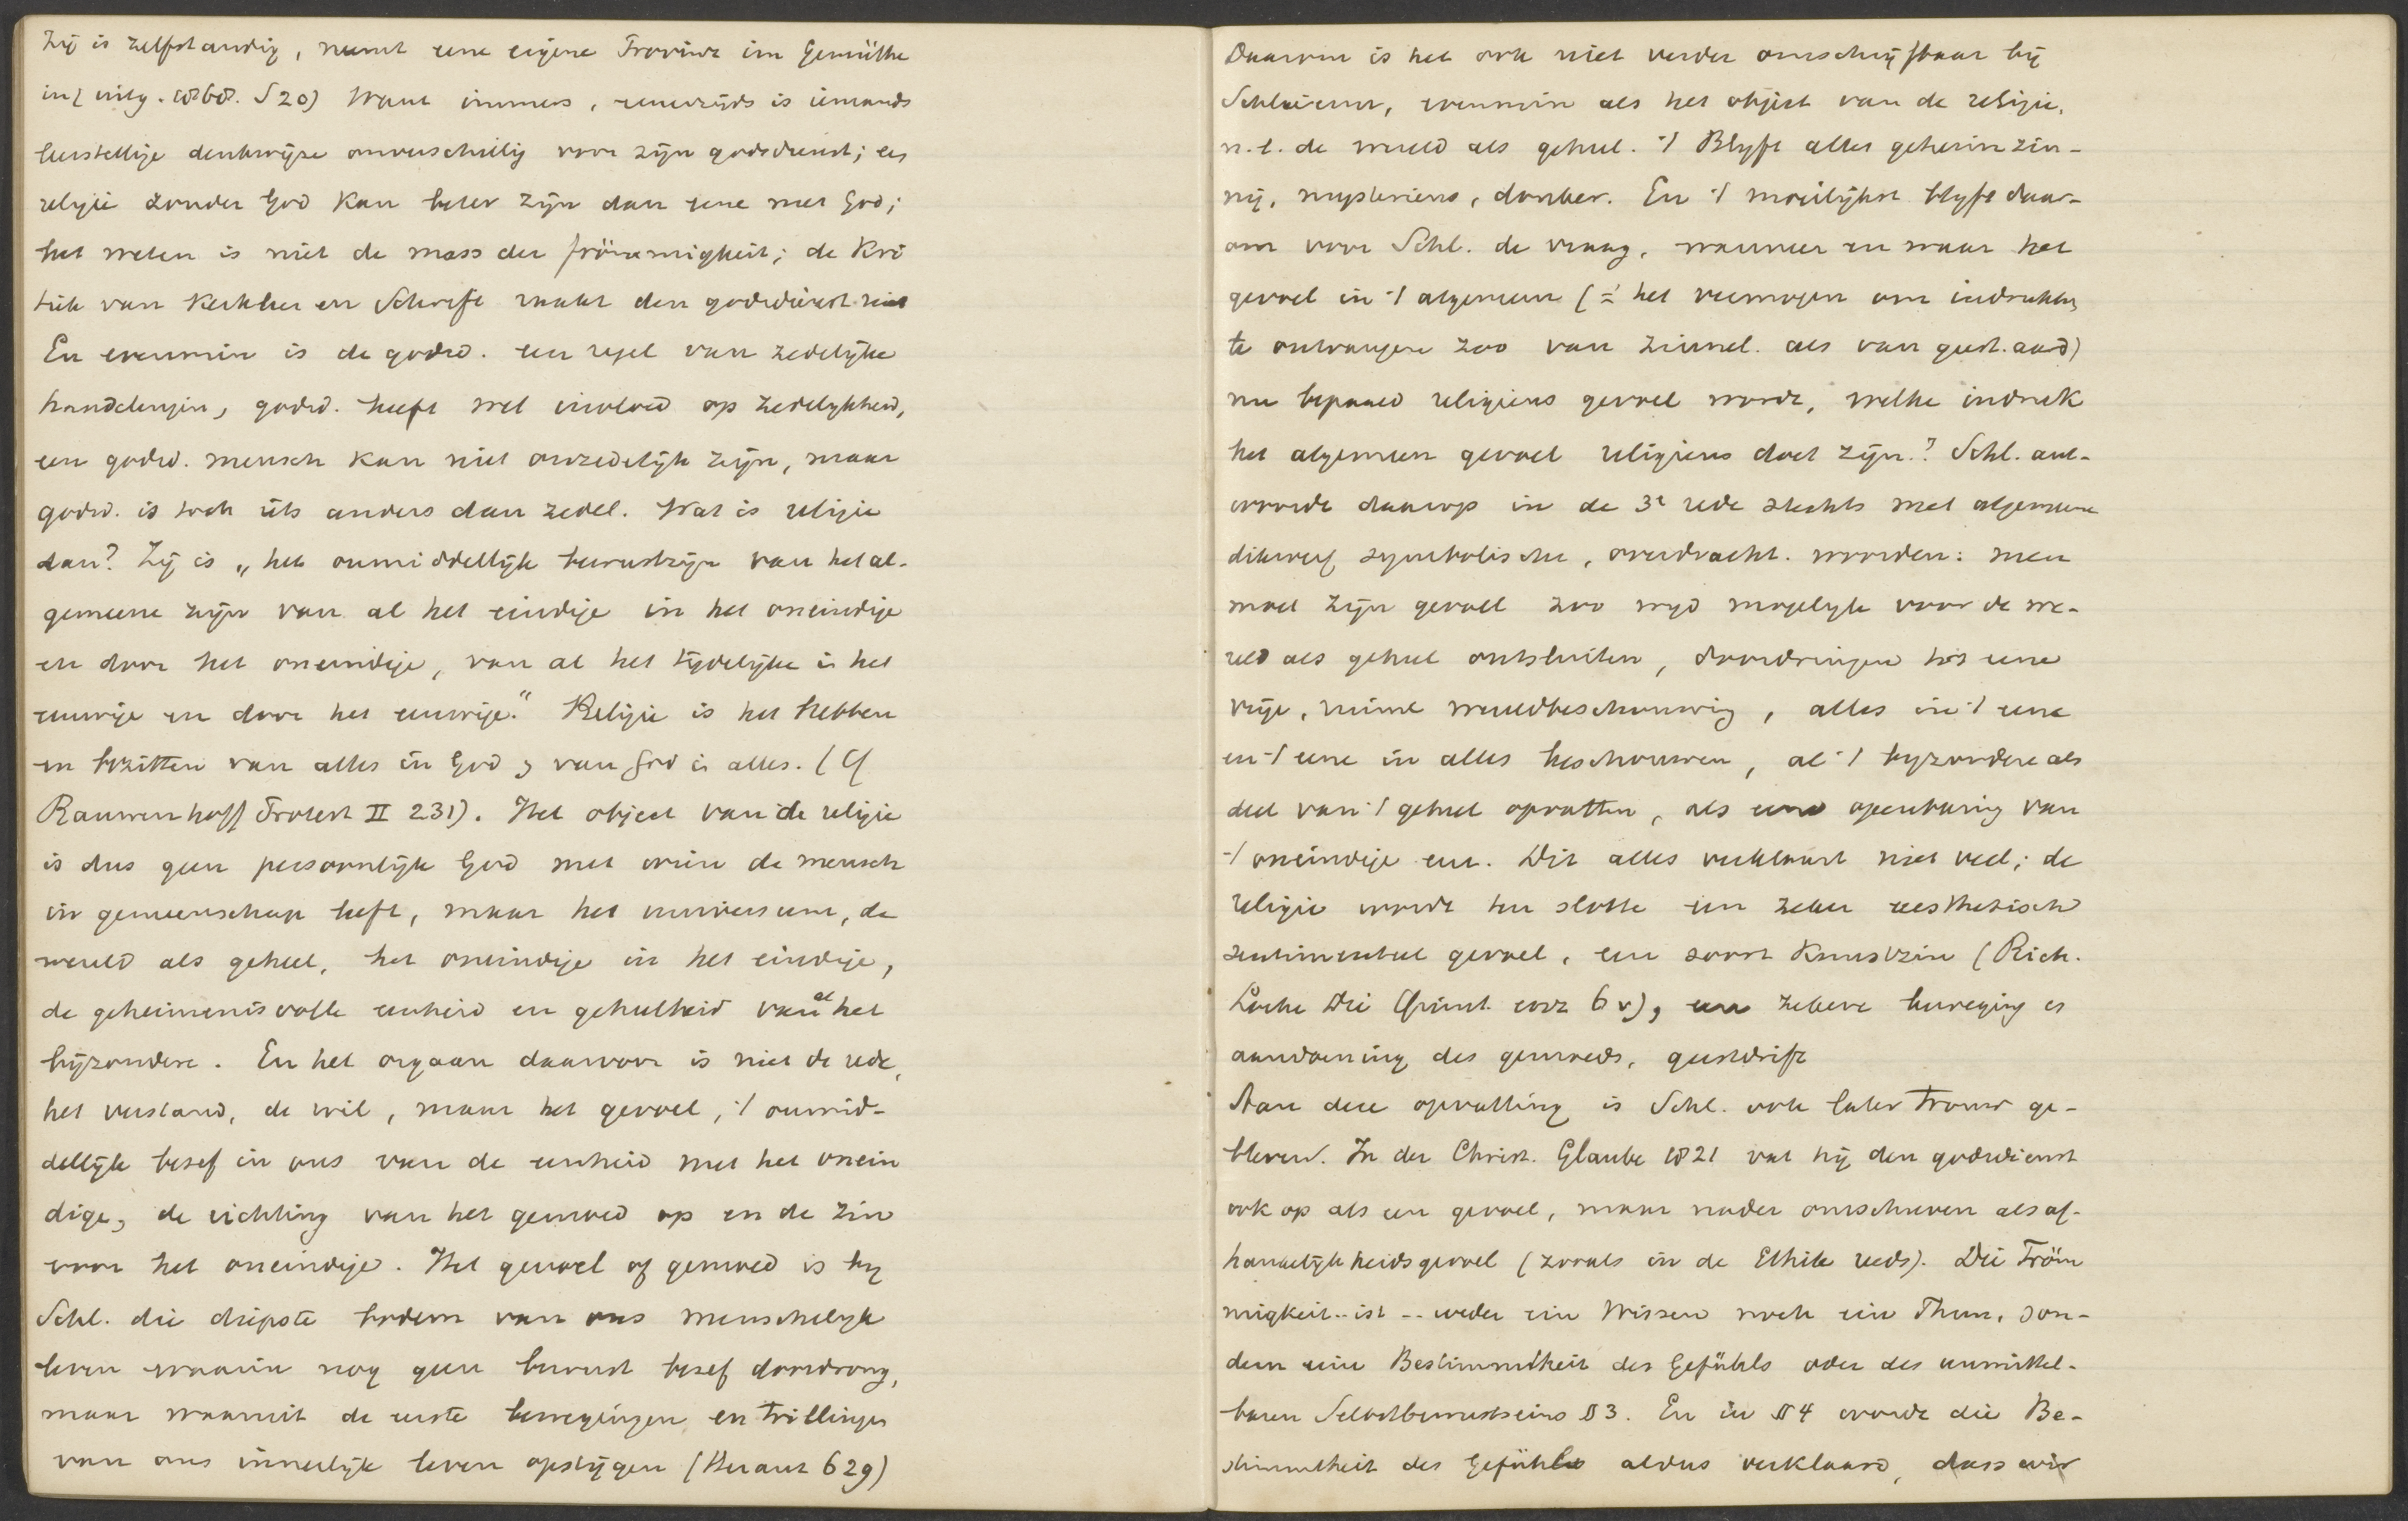 Zij is zelfstandig, neemt eene eigene Provinz im Gemüthe
in (uitg. 1868. S 20) Want immers, eenerzijds is iemands
leerstellige denkwijze onverschillig voor zijn godsdienst; een
religie zonder God kan beter zijn dan eene met God;
het weten is niet de mass der frömmigkeit; de Kri
tiek van Kerkleer en Schrift raakt den godsdienst niet
En evenmin is de godsd. een regel van zedelijke
handelingen, godsd. heeft wel invloed op zedelijkheid,
een godsd. mensch kan niet onzedelijk zijn, maar
godsd. is toch iets anders dan zedel. Wat is religie
dan? Zij is „het onmiddellijk bewustzijn van het al-
gemeene zijn van al het eindige in het oneindige
en door het oneindige, van al het tijdelijke in het
eeuwige en door het eeuwige." Religie is het hebben
en bezitten van alles in God en van God in alles. (Cf
Rauwenhoff Protest II 231). Het object van de religie
is dus geen persoonlijk God met wien de mensch
in gemeenschap leeft, maar het universum, de
wereld als geheel, het oneindige in het eindige,
de geheimenisvolle eenheid en geheelheid van al het
bijzondere. En het orgaan daarvoor is niet de rede,
het verstand, de wil, maar het gevoel, 't onmid-
dellijk besef in ons van de eenheid met het onein
dige, de richting van het gemoed op en de zin
voor het oneindige. Het gevoel of gemoed is bij
Schl. die diepste bodem van ons menschelijk
leven waarin nog geen bewust besef doordrong,
maar waaruit de eerste bewegingen en trillingen
van ons innerlijk leven opstijgen (Heraut 629)
Daarom is het ook niet verder omschrijfbaar bij
Schleierm, evenmin als het object van de religie,
n.l. de wereld als geheel. 't Blijft alles geheimzin-
nig, mysterieus, donker. En 't moeilijkst blijft daar-
om voor Schl. de vraag, wanneer en waar het
gevoel in 't algemeen (= het vermogen om indrukken
te ontvangen zoo van zinnel. als van geest. aard)
nu bepaald religieus gevoel wordt, welke indruk
het algemeen gevoel religieus doet zijn? Schl. ant-
woordt daarop in de 3e rede slechts met algemeene
dikwerf symbolische, overdracht. woorden: men
moet zijn gevoel zoo wijd mogelijk voor de we-
reld als geheel ontsluiten, doordringen tot eene
vrije, ruime wereldbeschouwing, alles in 't eene
en 't eene in alles beschouwen, al 't bijzondere als
deel van 't geheel opvatten, als eene openbaring van
't oneindige enz. Dit alles verklaart niet veel; de
religie wordt ten slotte een zeker aesthetisch
sentimenteel gevoel, een soort Kunstzin (Rich.
Lothe Die 6 v), een zekere beweging en
aandoening des gemoeds, geestdrift
Aan deze opvatting is Schl. ook later trouw ge-
bleven. In der Christ. Glaube 1821 vat hij den godsdienst
ook op als een gevoel, maar nader omschreven als af-
hankelijkheidsgevoel (zooals in de Ethik reeds). Die Fröm
migkeit .. ist .. weder ein Wissen noch ein Thun, son-
dern eine Bestimmtheit des Gefühls oder des unmittel-
baren Selbstbewustseins § 3. En in § 4 wordt die Be-
stimmtheit des Gefühls aldus verklaard, dass wir